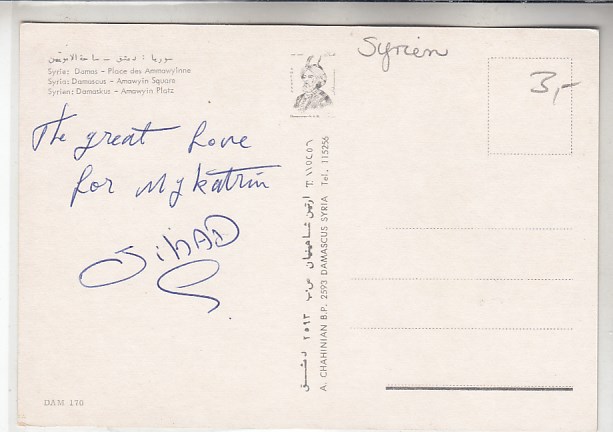 سوريا : دمشق - ساحة الامويين
Syrie: Damas - Place des Ammawiyinne
Syria: Damascus - Amawyin Square
Syrien: Damaskus - Amawyin Platz
The great Love
for My katrin
JiHAD
Syrien
3,-
ارتين شاهينيان ص.ب ٢٥٩٣ دمشق T. ١١٥٢٥٦
A. CHAHINIAN B.P. 2593 DAMASCUS SYRIA Tel. 115256
DAM 170